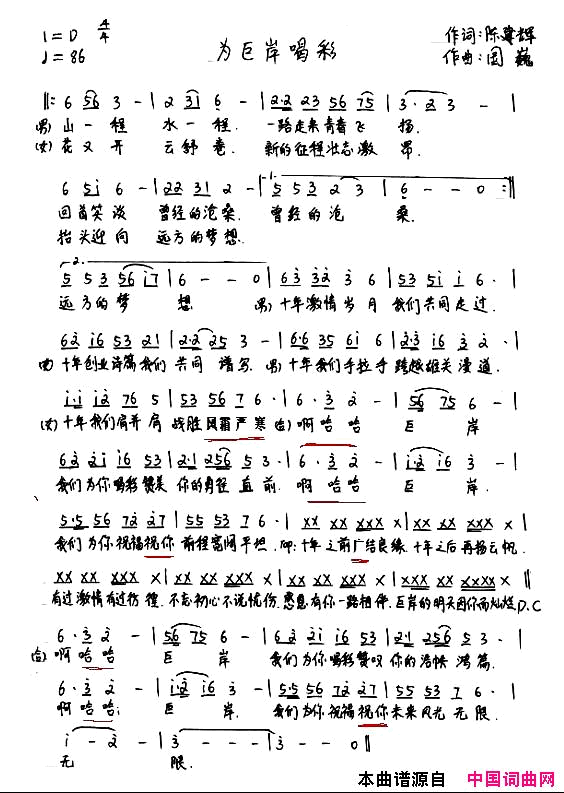 1=D 4/4
♩=86
为巨岸唱彩
作词:陈建辉
作曲:周巍
‖: 6 56 3 - | 2 31 6 - | 2·2 23 56 75 | 3·2 3 - |
(男) 山一程 水一程. 一路走来青春飞扬
(女) 花又开 云舒卷. 新的征程壮志激昂
6 5i 6 - | 22 31 2 - | 1. 5 53 2 3 | 6 - - 0 :‖
回首笑谈 曾经的沧桑. 曾经的沧桑.
抬头迎向 远方的梦想.
2. 5 53 56 i7 | 6 - - 0 | 63 32 3 6 | 53 5i i 6· |
远方的梦想 男) 十年激情岁月 我们共同走过.
62 i6 53 21 | 2·2 25 3 - | 6·6 35 6i 6 | 2·3 i6 3 2· |
(女) 十年创业诗篇我们共同谱写. 男) 十年我们手拉手 跨越雄关漫道.
i·i i2 76 5 | 53 56 7 6· | 6·3 2 - | 56 75 6 - |
(女) 十年我们肩并肩 战胜风霜严寒 (合) 啊哈哈 巨岸
62 2i i6 53 | 2·1 256 5 3· | 6·3 2 - | i·2 i6 3 - |
我们为你喝彩赞美 你的勇往直前. 啊哈哈 巨岸.
5·5 56 72 27 | 55 53 7 6· | XX XX XXX X | XX XX XXX X |
我们为你祝福祝你 前程宽阔平坦. 十年之前广结良缘. 十年之后再扬云帆.
XX XX XXX X | XX XX XXX X | XX XX XXX X | XXX XX XXXX X ‖
有过激情有过彷徨. 不忘初心不说忧伤. 感恩有你一路相伴. 巨岸的明天因你而灿烂 D.C
6·3 2 - | 56 75 6 - | 62 2i i6 53 | 2·1 256 5 3· |
(合) 啊哈哈 巨岸 我们为你喝彩赞叹 你的浩帙鸿篇.
6·3 2 - | i·2 i6 3 - | 5·5 56 72 27 | 55 53 7 6· |
啊哈哈; 巨岸. 我们为你祝福祝你未来风光无限.
i - 2 - | 3 - - - | 3 - - 0 ‖
无限.
本曲谱源自 中国词曲网